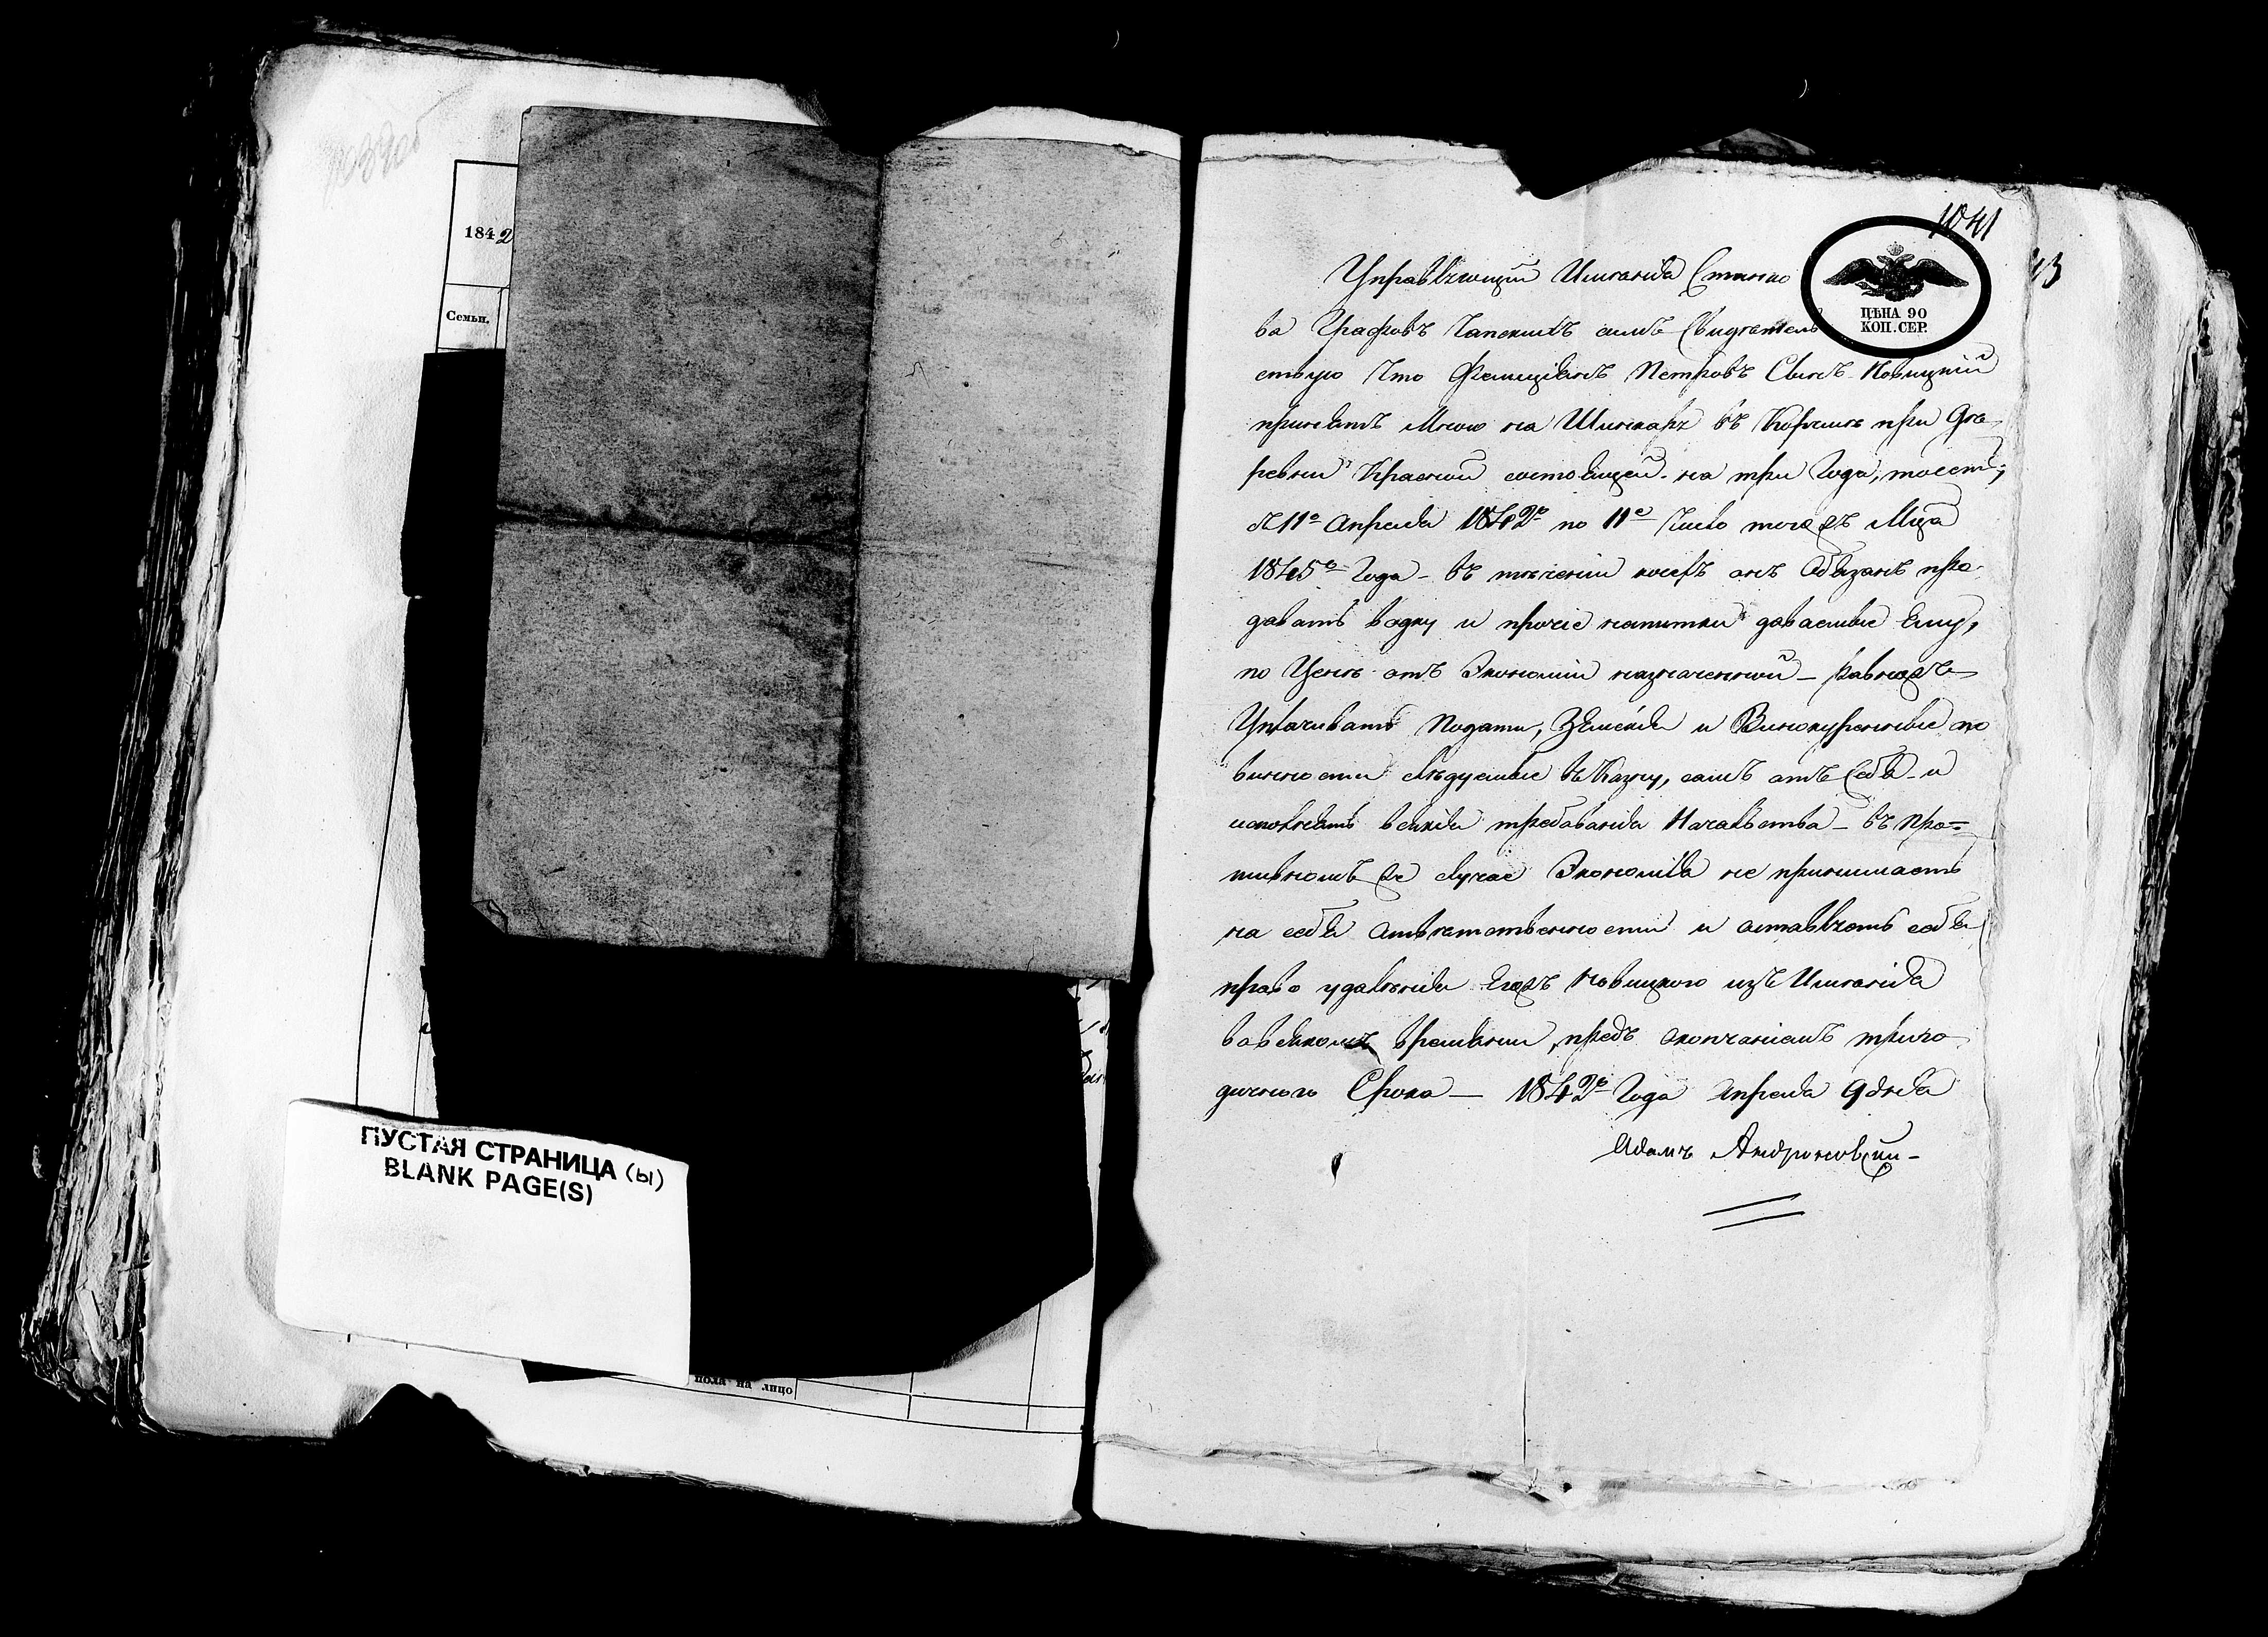 1842
Семьи.
ПУСТАЯ СТРАНИЦА (ы)
BLANK PAGE(S)
пола на лицо
1041
43
ЦѢНА 90
КОП. СЕР.
Управляющій Имѣнія Станько
ва Графовъ Чапскихъ симъ Свидѣтель
ствую что Фелиціанъ Петровъ Сынъ Новицкій
принятъ Мною на Шинкаря въ Корчмѣ при Де-
ревни Красной состоящей на три Года, тоесть,
съ 11º Апрѣля 1842º по 11ᵉ Число тогожъ Мца
1845º Года – въ теченіи коихъ онъ Обязанъ про-
давать водку и прочіе напитки даваемые Ему,
по Ценѣ отъ Экономіи назначенной – равножъ
Уплачивать Подати, Земскія и Винокуренные по
винности слѣдуемые въ Казну, самъ отъ Себя – и
исполнять всякія требованія Начальства – въ Про=
тивномъ же случае Экономія не принимаетъ
на себя Отвѣтственности и оставляетъ себя
право удаленія Егожъ Новицкого изъ Имѣнія
вовсякомъ времяни, предъ окончаніемъ триго
дичного Срока — 1842º Года Апрѣля 9 дня
Адамъ Андроновскій –